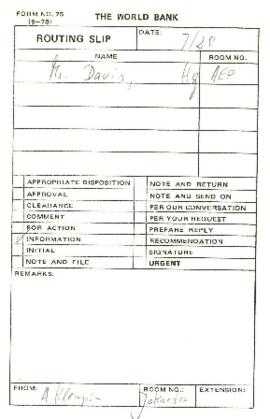 FORM NO. 75
(9-78)
THE WORLD BANK
ROUTING SLIP
DATE:
7/20
NAME
ROOM NO.
Mr. Davis, Hq
AEP
APPROPRIATE DISPOSITION
NOTE AND RETURN
APPROVAL
NOTE AND SEND ON
CLEARANCE
PER OUR CONVERSATION
COMMENT
PER YOUR REQUEST
FOR ACTION
PREPARE REPLY
✓
INFORMATION
RECOMMENDATION
INITIAL
SIGNATURE
NOTE AND FILE
URGENT
REMARKS:
FROM:
ROOM NO.:
EXTENSION:
A.
Jakarta